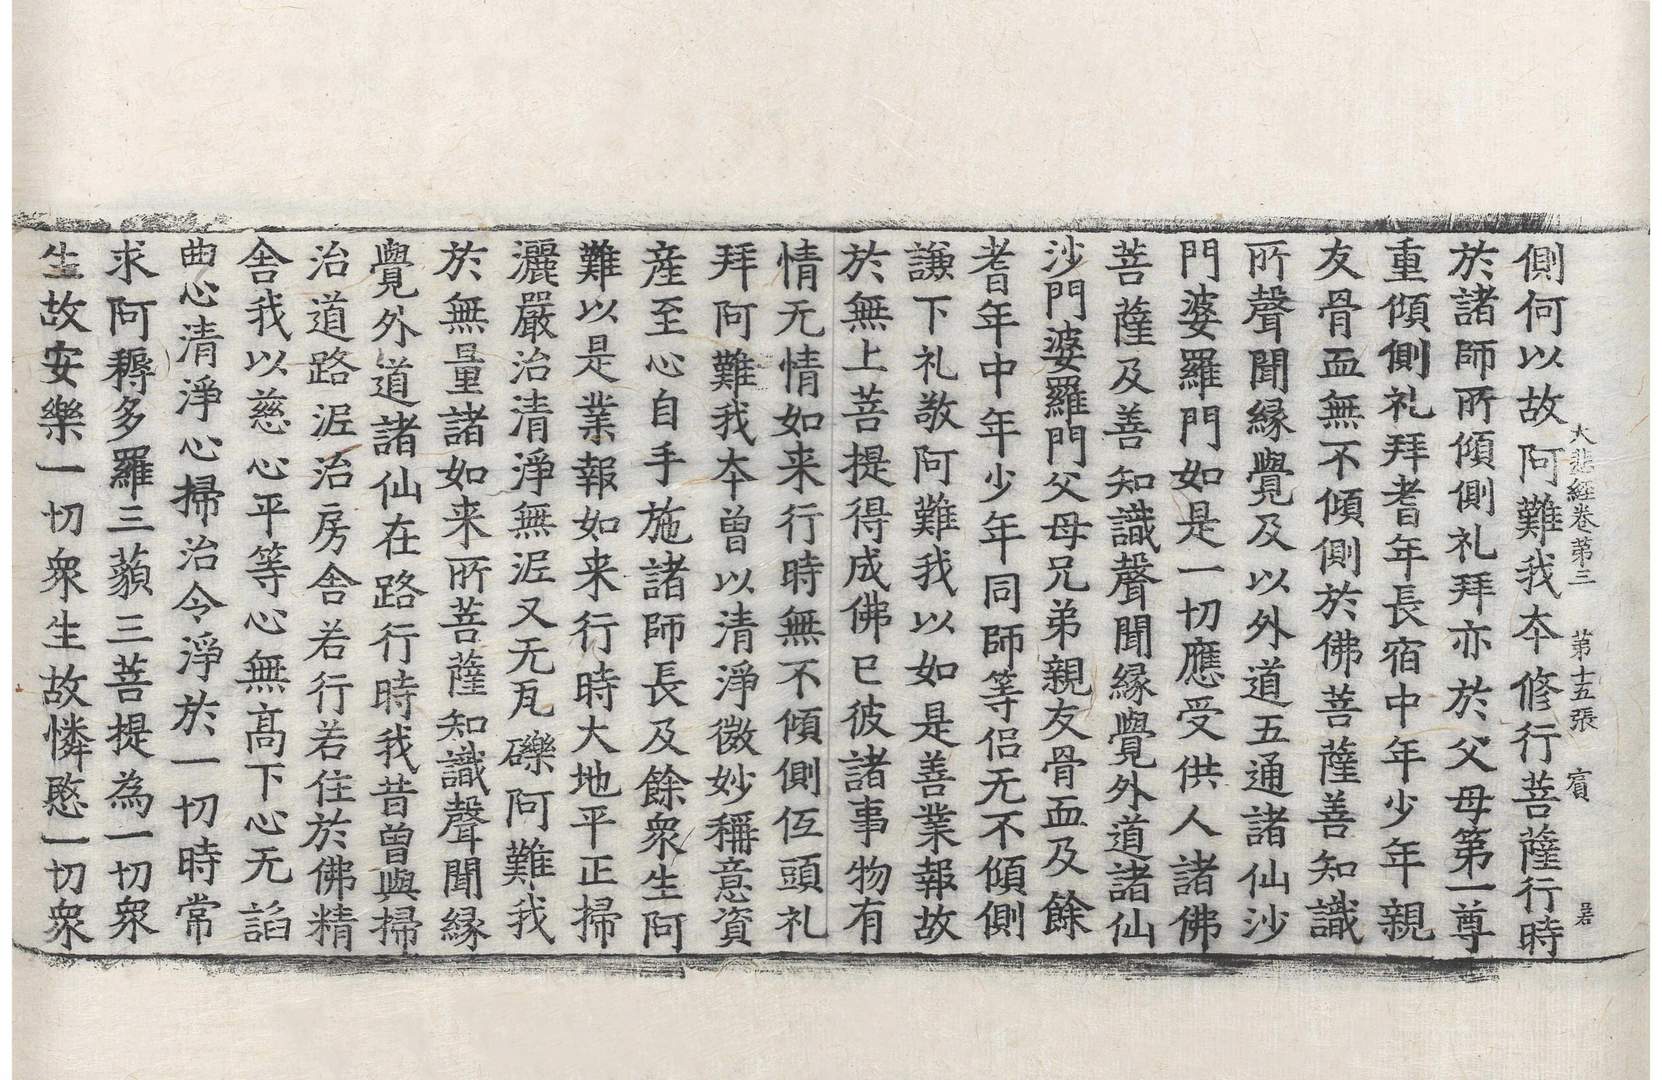 大悲經卷第三　第十五張　賓
側何以故阿難我本修行菩薩行時
於諸師所傾側礼拜亦於父母第一尊
重傾側礼拜耆年長宿中年少年親
友骨血無不傾側於佛菩薩善知識
所聲聞縁覺及以外道五通諸仙沙
門婆羅門如是一切應受供人諸佛
菩薩及善知識聲聞縁覺外道諸仙
沙門婆羅門父母兄弟親友骨血及餘
耆年中年少年同師等侣无不傾側
謙下礼敬阿難我以如是善業報故
於無上菩提得成佛已彼諸事物有
情无情如来行時無不傾側伍頭礼
拜阿難我本曾以清淨微妙稱意資
産至心自手施諸師長及餘衆生阿
難以是業報如来行時大地平正掃
灑嚴治清淨無泥又无瓦礫阿難我
於無量諸如来所菩薩知識聲聞縁
覺外道諸仙在路行時我昔曾與掃
治道路泥治房舍若行若住於佛精
舍我以慈心平等心無髙下心无諂
曲心清淨心掃治令淨於一切時常
求阿耨多羅三藐三菩提為一切衆
生故安樂一切衆生故憐愍一切衆